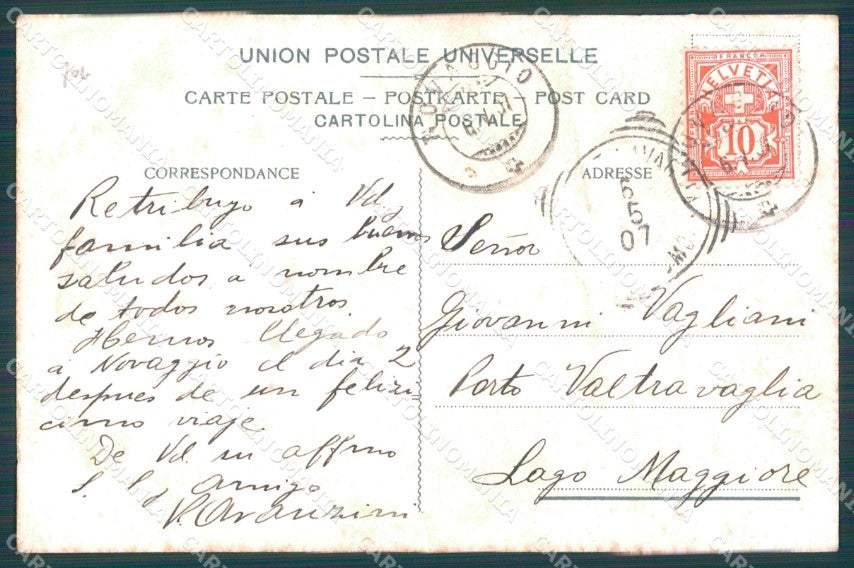 UNION POSTALE UNIVERSELLE
CARTE POSTALE – POSTKARTE – POST CARD
CARTOLINA POSTALE
CORRESPONDANCE
Retribuyo á Vd,
familia sus buenos
saludos a nombre
de todos nosotros.
Hemos llegado
a Novaggio el dia 2
despues de un felizi-
cimo viaje.
De Vd. un affmo
S. S. y amigo
V. Avanzini
ADRESSE
Señor
Giovanni Vagliani
Porto Valtravaglia
Lago Maggiore
FRANCO
HELVETIA
10
07
CARTOLINOMANIA